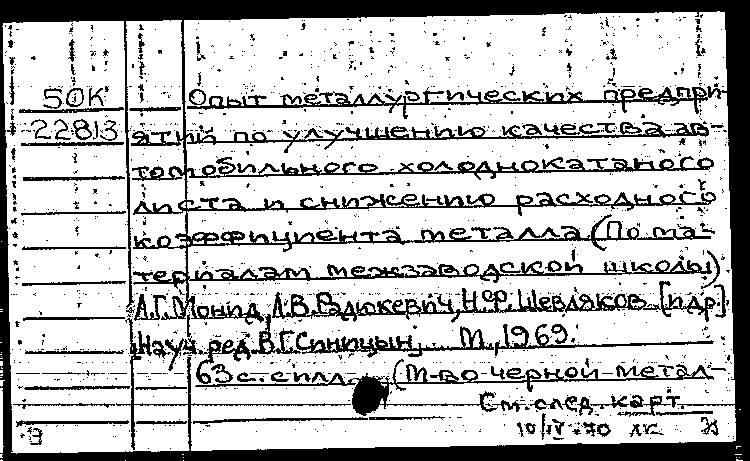 50К Опыт металлургических предпри-
22813 ятий по улучшению качества ав-
томобильного холоднокатаного
листа и снижению расходного
коэффициента металла (По ма-
териалам межзаводской школы)
А.Г.Монид, А.В.Радюкевич, Н.Ф.Шевляков [и др.]
Науч. ред. В.Г.Синицын, М., 1969.
63 с. с илл. (М-во черной метал-
См. след. карт.
10/IV-70